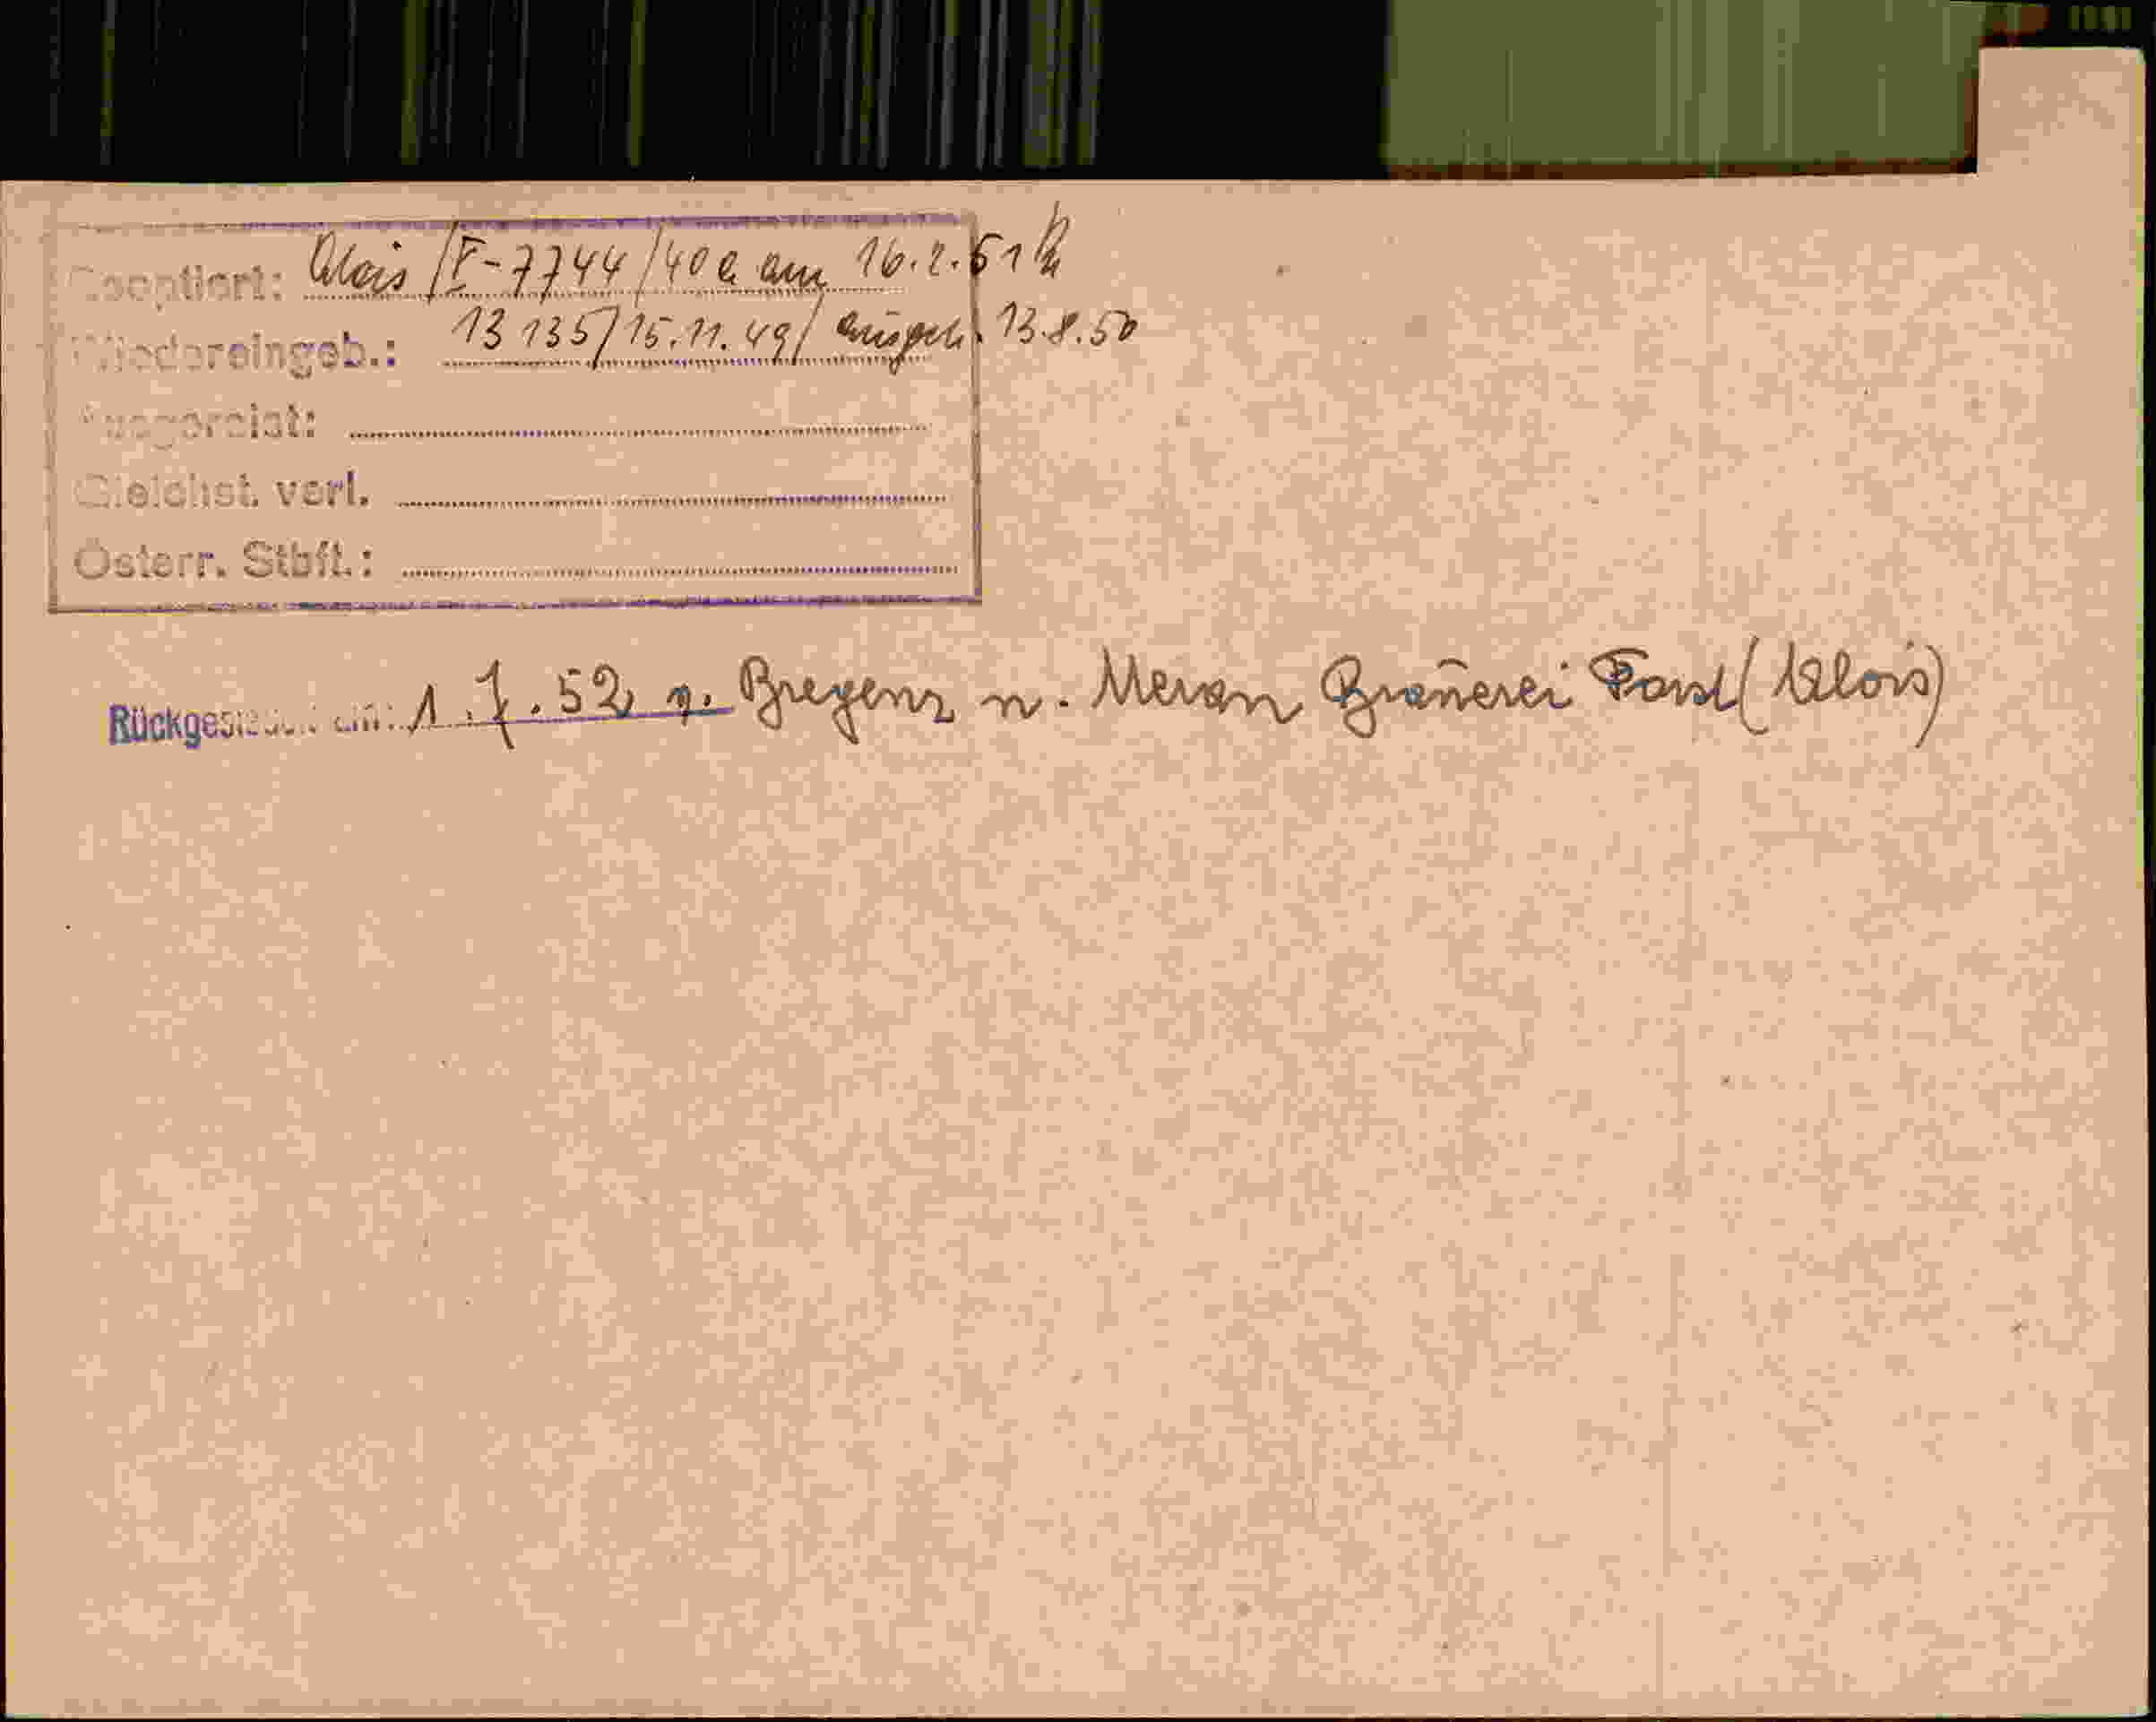 Reoptiert: Alois /I-7744/40 a am 16.2.51
Wiedereingeb.: 13 135/15.11.49/ ausgeh. 13.8.50
Ausgereist:
Gleichst. verl.
Österr. Stbft.:
Rückgesiedelt am: 1.7.52 v. Bregenz n. Meran Brauerei Forst (Alois)